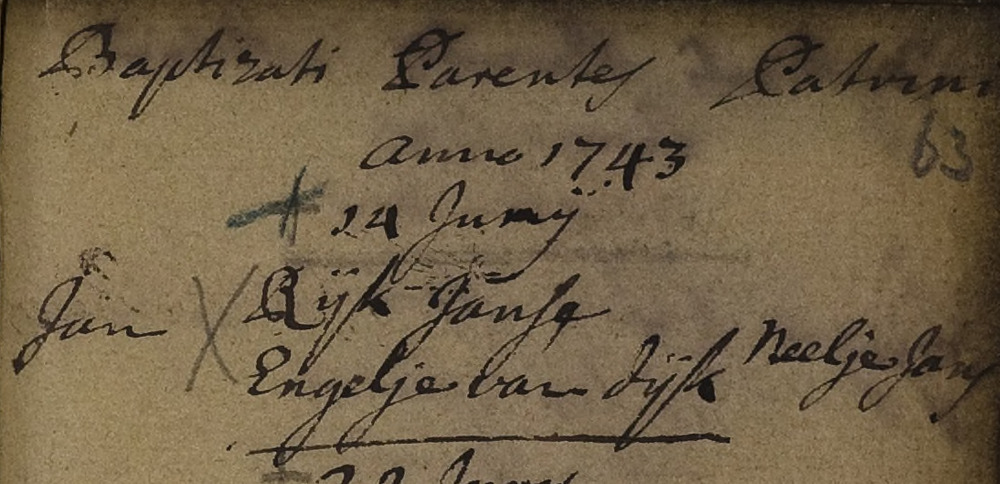 Baptizati Parentes Patrini
63
Anno 1743
14 Junij
Jan Rijk Janse
Engelje van Dijk Neelje Jans